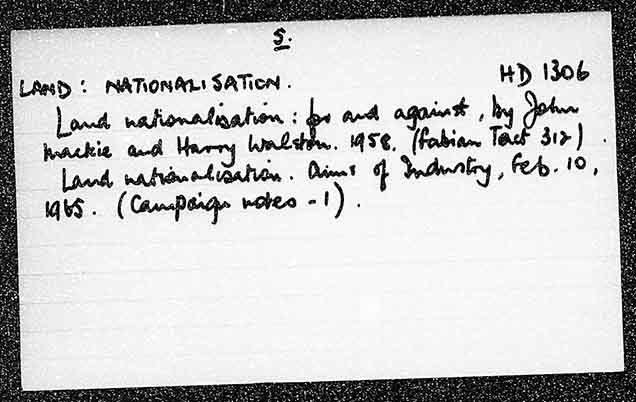 5.
LAND: NATIONALISATION. HD 1306
Land nationalisation: for and against, by John
Mackie and Harry Walston. 1958. (Fabian Tract 312)
Land nationalisation. Aims of Industry, Feb. 10,
1965. (Campaign notes - 1).